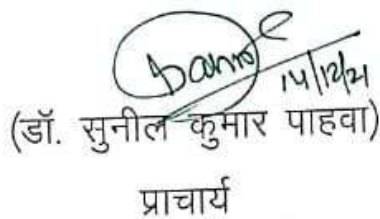 14/12/21
(डॉ. सुनील कुमार पाहवा)
प्राचार्य